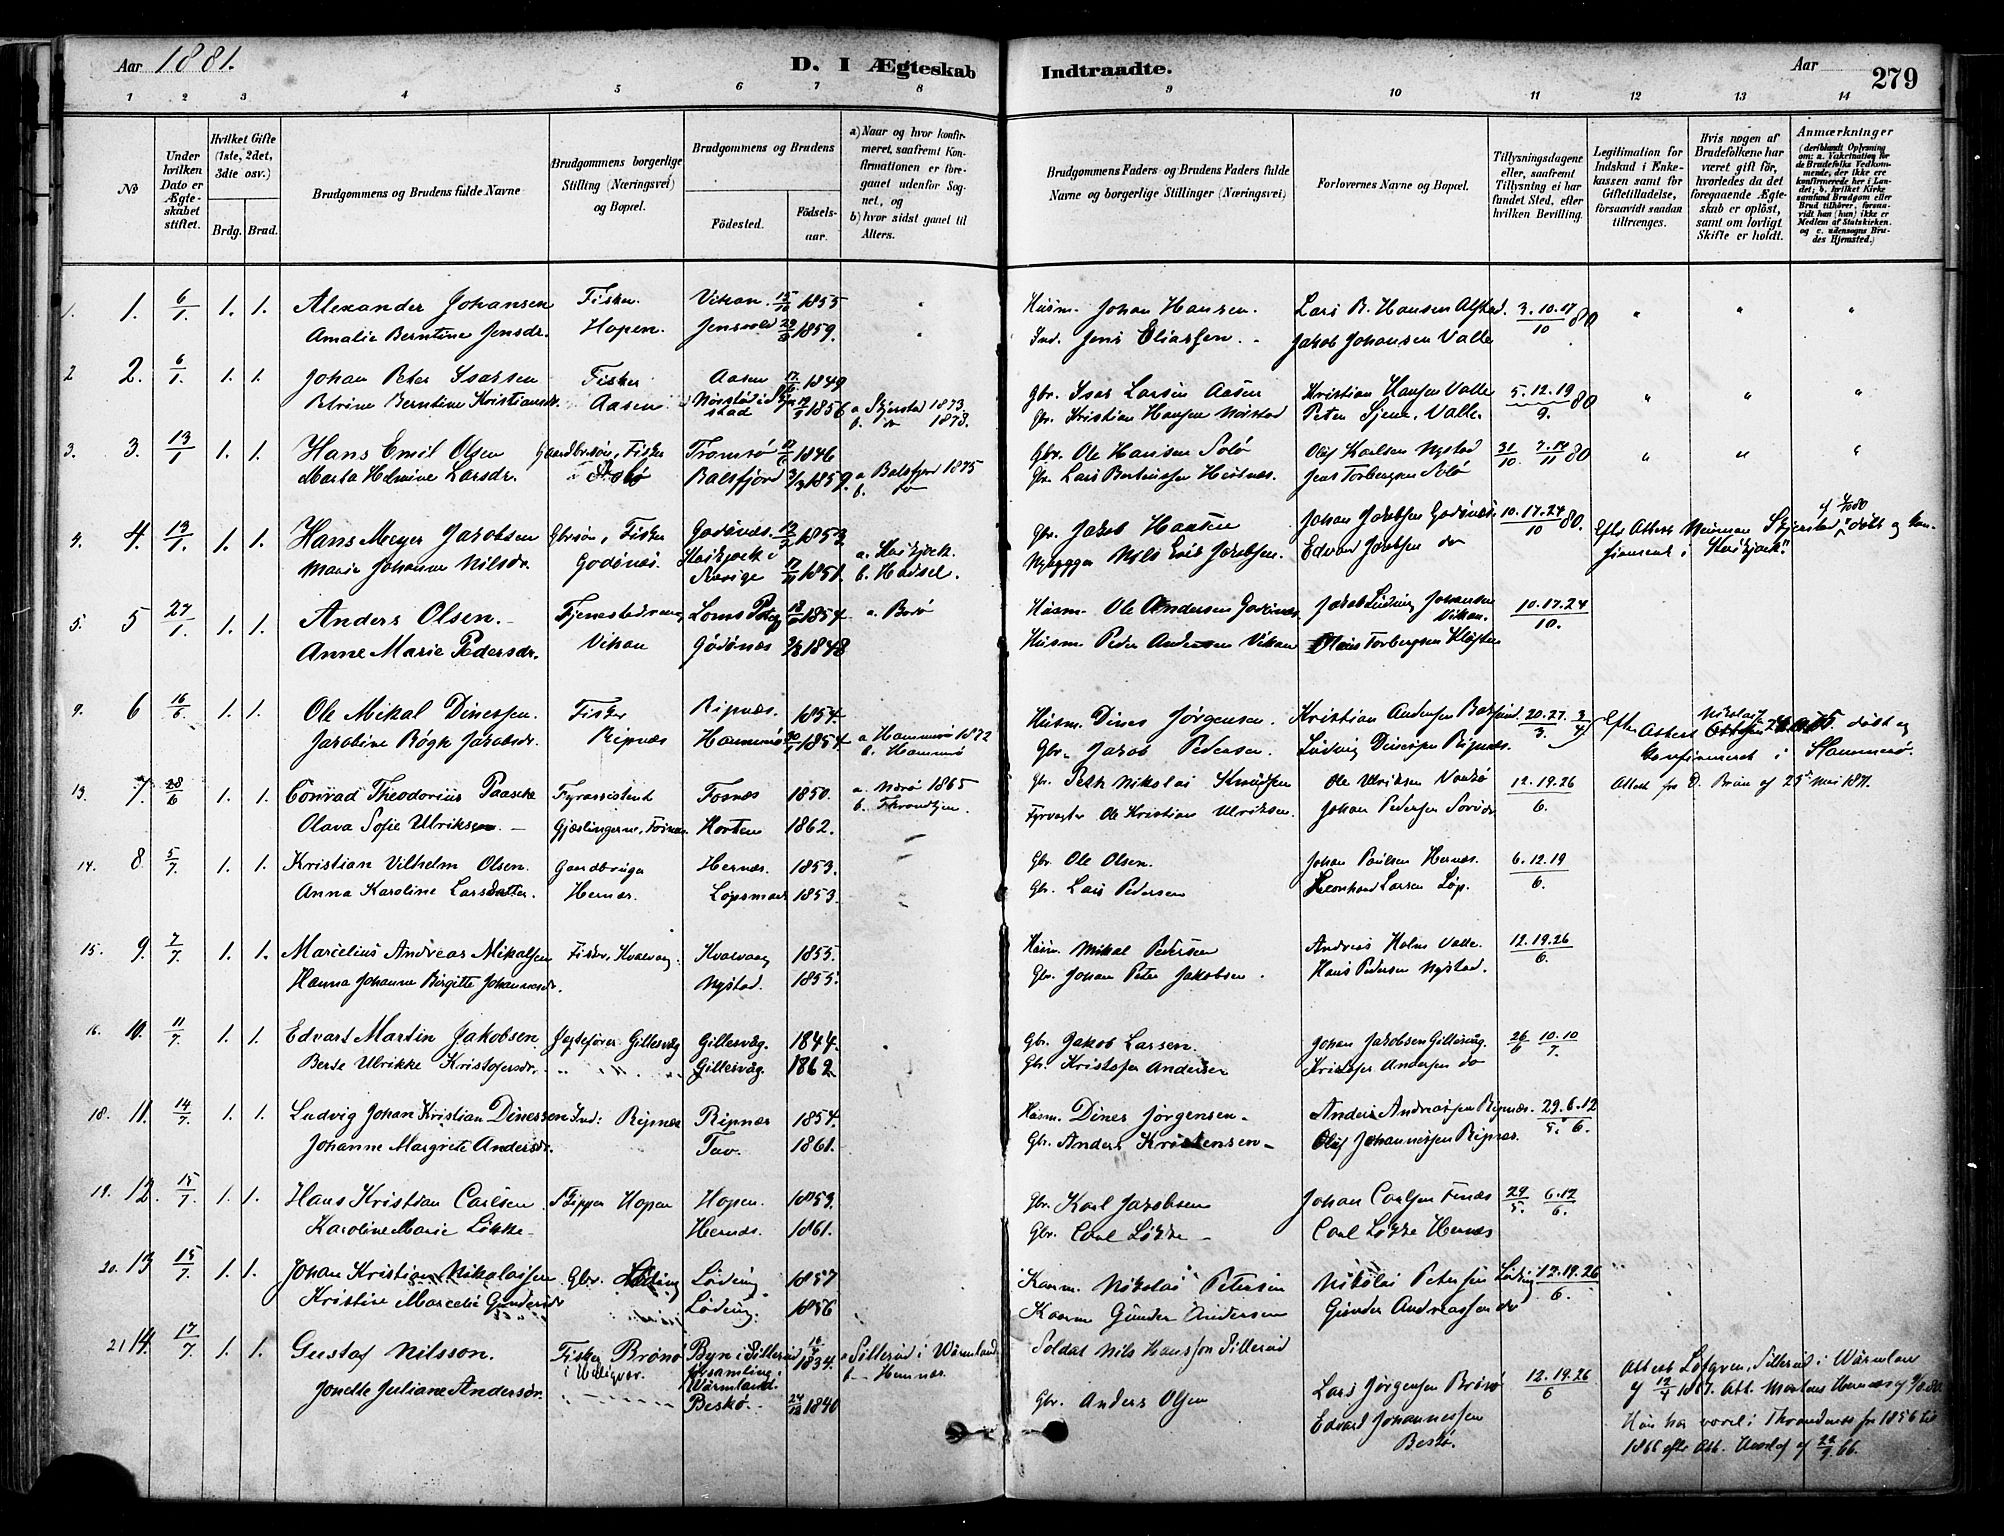 Aar 1881.
D. I Ægteskab Indtraadte.
Aar 279
1 2 3 4 5 6 7 8 9 10 11 12 13 14
No
Under hvilken Dato er Ægteskabet stiftet.
Hvilket Gifte (1ste, 2det, 3die osv.)
Brdg. Brud.
Brudgommens og Brudens fulde Navne
Brudgommens borgerlige Stilling (Næringsvei) og Bopæl.
Brudgommens og Brudens
Fødested. Fødselsaar.
a) Naar og hvor konfirmeret, saafremt Konfirmationen er foregaaet udenfor Sognet, og
b) hvor sidst gaaet til Alters.
Brudgommens Faders og Brudens Faders fulde Navne og borgerlige Stillinger (Næringsvei)
Forlovernes Navne og Bopæl.
Tillysningsdagene eller, saafremt Tillysning ei har fundet Sted, efter hvilken Bevilling.
Legitimation for Indskud i Enkekassen samt for Giftetilladelse, forsaavidt saadan tiltrænges.
Hvis nogen af Brudefolkene har været gift, hvorledes da det foregaaende Ægteskab er opløst, samt om lovligt Skifte er holdt.
Anmærkninger (deriblandt Oplysning om: a. Vakcination for de Brudefolks Vedkommende, der ikke ere konfirmerede her i Landet; b. hvilket Kirkesamfund Brudgom eller Brud tilhører, forsaavidt han (hun) ikke er Medlem af Statskirken, og c. udensogns Brudes Hjemsted.)
1. 1. 6/1 1. 1. Alexander Johansen Fisker. Vikan. 1855 " Husm. Johan Hansen. Lars R. Hansen Alstad. 3.10.17/10 80 " " "
Amalie Berntine Jensdr. Hopen. Jensvold 1859. " Ind. Jens Eliassen. Jakob Johansen Valle
2 2. 6/1 1. 1. Johan Peter Ivarsen Fisker Aasen 17/6 1849 Gbr. Ivar Larsen Aasen Kristian Hansen Valle 5.12.19/9. 80 " " "
Petrine Berntine Kristiansdr. Aasen. 1856 a. Skjerstad 1873. b. do 1873. Gbr. Kristian Hansen Nøistad Peter Valle.
3. 3. 13/1 1. 1. Hans Emil Olsen Gaardbrsøn, Fisker Tromsø 1846 Gbr. Ole Hansen Solø Oluf Karlsen Nystad 31/10 7.14/11 80 " " "
Marta Helmine Larsdr. Balsfjord 1859. a. Balsfjord 1875 b. do Gbr. Lars Jens Torbergsen Solø
4. 4. 13/1 1. 1. Hans Meyer Jakobsen Gbrsøn, Fisker Godønæs. 1853 Gbr. Jakob Hansen Johan Jakobsen Godønæs. 10.17.24/10 80. Efter Attest Skjerstad døbt og kon-
Marie Johanne Nilsdr. Godønæs. i Sverige 1851. b. Hadsel. Nybygger Nils Erik Jakobsen. Edvard Jakobsen do firmeret i
5. 5 27/1 1. 1. Anders Olsen. Fjenestedreng Loms 1854 a. Bodø Husm. Ole Andersen Godønæs Jakob Ludvig Johansen Vikan. 10.17.24/10.
Anne Marie Pedersdr. Vikan Godønæs 1848 Husm. Peder Andersen Vikan Torbergsen
9. 6 16/6 1. 1. Ole Mikal Dinessen. Fisker Ripnæs. 1854 Husm. Dines Jørgensen. Kristian Andersen 20.27./3 3/4 Efter Attest Nikolai døbt og
Jakobine Bøgh Jakobsdr. Ripnæs Hammerø 1854 a Hammerø 1872 b. Hammerø Gbr. Jakob Pedersen. Ludvig Dinessen Ripnæs. Confirmeret i Hammerø.
13. 7. 28/6 1. 1. Conrad Theodorius Paasche Fyrassistent Fosnæs 1850. a. Nærø 1865 b. Throndhjem Gbr. Peth Nikolai Knudsen Ole Ulriksen 12.19.26/6. Attest fra D. Bruun af 25de Mai 1871.
Olava Sofie Ulriksen Gjæslingerne, Fosnæs Horten 1862. Fyrvogter Ole Kristian Ulriksen Johan Pedersen
14. 8 5/7 1. 1. Kristian Vilhelm Olsen. Gaardbruger Hernæs. 1853. Gbr. Ole Olsen. Johan Paulsen Hernæs. 6.12.19/6.
Anna Karoline Larsdatter Hernæs. Løpsmark 1853. Gbr. Lars Pedersen Leonhard Larsen Løp.
15. 9. 7/7 1. 1. Marcelius Andreas Mikalsen Fisker, Kvalvaag. Kvalvaag 1855. Husm. Mikal Pedersen Andreas Holm Valle. 12.19.26/6.
Hanna Johanne Birgitte Johannesdr. Nystad. 1855. Gbr. Johan Peter Jakobsen. Hans Pedersen Nystad.
16. 10. 11/7 1. 1. Edvart Martin Jakobsen. Jægtefører Gillesvåg Gillesvåg. 1844. Gbr. Jakob Larsen. Johan Jakobsen Gillesvåg. 26/6 10.10/7.
Berte Ulrikke Kristofersdr. " " " Gillesvåg. 1862. Gbr. Kristofer Andersen Kristofer Andersen do
18. 11. 14/7 1. 1. Ludvig Johan Kristian Dinessen Ind: Ripnæs Ripnæs 1854. Husm. Dines Jørgensen Anders Andreassen Ripnæs. 29/5. 6.12/6.
Johanne Margrete Andersdr. Tuv. 1861. Gbr. Anders Kristensen Oluf Johannessen Ripnæs.
19. 12. 15/7 1. 1. Hans Kristian Carlsen Skipper Hopen Hopen. 1853. Gbr. Karl Jakobsen Johan Carlsen 29/5. 6.12/6.
Karoline Marie Løkke Hernæs. 1861. Gbr. Carl Løkke Carl Løkke Hernæs
20. 13 15/7 1. 1. Johan Kristian Nikolaisen Gbr. Løding Løding 1857 Kaarm. Nikolai Petersen Nikolai Petersen Løding 12.19.26/6.
Kristine Marcelie Gundersdr Løding. 1856 Kaarm Gunder Andersen Gunder Andreassen do
21 14. 17/7 1. 1. Gustaf Nilsson. Fisker Brønø Byn i Sillerud 1834. a Sillerud i Wärmland Soldat Nils Hansson Sillerud 12.19.26/6 Attest Löfgren, Sillerud i Wärmland
Jonette Juliane Andersdr. Wärmland. Beskø. 24/12 1840 b Hernæs. Gbr. Anders Olsen Lars Jørgensen Edvard Johannessen Beskø. 1867. Att. Hernæs
Han har været i Throndenes fra 1856 til
1866 efter Att. 66.